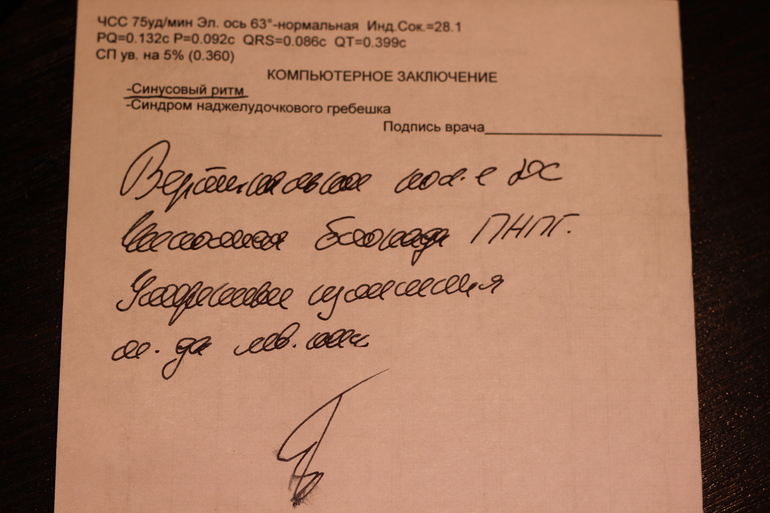 ЧСС 75уд/мин Эл. ось 63°-нормальная Инд.Сок.=28.1
PQ=0.132с P=0.092с QRS=0.086с QT=0.399с
СП ув. на 5% (0.360)
КОМПЬЮТЕРНОЕ ЗАКЛЮЧЕНИЕ
-Синусовый ритм
-Синдром наджелудочкового гребешка
Подпись врача
Вертикальная пол-е ЭОС
Неполная блокада ПНПГ.
изменения